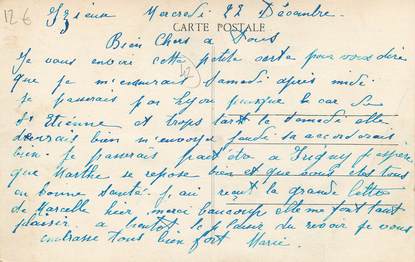 12€
Izieux Mercredi 22 Décembre.
CARTE POSTALE
Bien Chers a Tous
Je vous envoie cette petite carte pour vous dire
que je m'ennuirais Samedi après midi
42
je passerais par Lyon puisque le car de
St Etienne et trops tart le Samedi elle
devrais bien m'envoyé jeudi sa accorderais
bien. Je passerais peut être a Irigny j'espère
que Marthe se repose bien et que vous êtes tous
en bonne santé. j'ai reçut la grande lettre
de Marcelle hier, merci beaucoup elle me font tant
plaisir a bientôt le plaisir du revoir je vous
embrasse tous bien fort Marie.